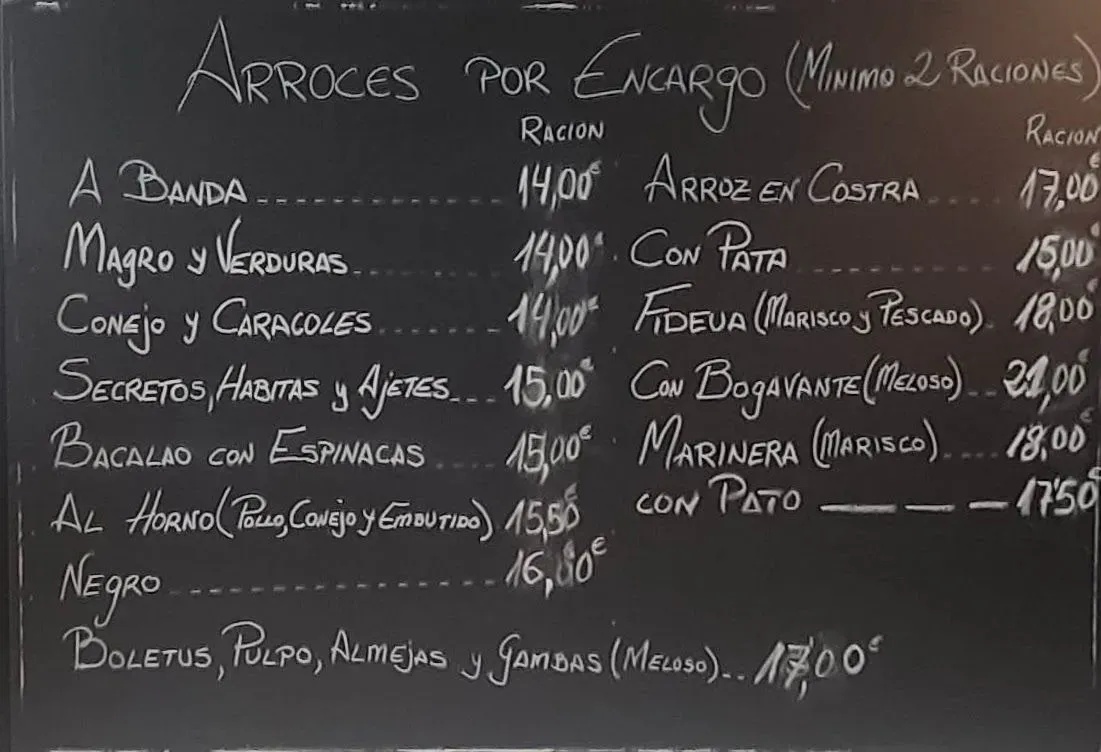 ARROCES POR ENCARGO (MINIMO 2 RACIONES)
RACION
A BANDA 14,00€
MAGRO Y VERDURAS 14,00€
CONEJO Y CARACOLES 14,00€
SECRETOS, HABITAS Y AJETES 15,00€
BACALAO CON ESPINACAS 15,00€
AL HORNO (POLLO, CONEJO Y EMBUTIDO) 15,50€
NEGRO 16,00€
BOLETUS, PULPO, ALMEJAS Y GAMBAS (MELOSO) 17,00€
RACION
ARROZ EN COSTRA 17,00€
CON PATA 15,00€
FIDEUA (MARISCO Y PESCADO) 18,00€
CON BOGAVANTE (MELOSO) 21,00€
MARINERA (MARISCO) 18,00€
CON PATO 17'50€